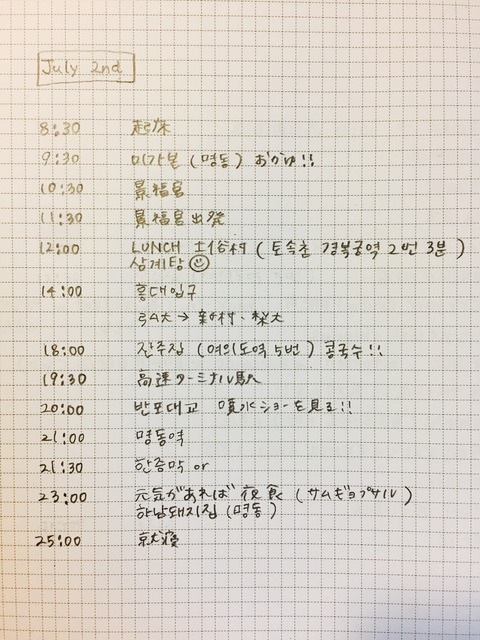 July 2nd
8:30 起床
9:30 미가본 (명동) おかゆ!!
10:30 景福宮
11:30 景福宮出発
12:00 LUNCH 土俗村 (토속촌 경복궁역 2번 3분)
삼계탕
14:00 홍대입구
弘大 → 新村、梨大
18:00 진주집 (여의도역 5번) 콩국수!!
19:30 高速ターミナル駅
20:00 반포대교 噴水ショーを見る!!
21:00 명동역
21:30 한증막 or
23:00 元気があれば 夜食 (サムギョプサル)
하남돼지집 (명동)
25:00 就寝